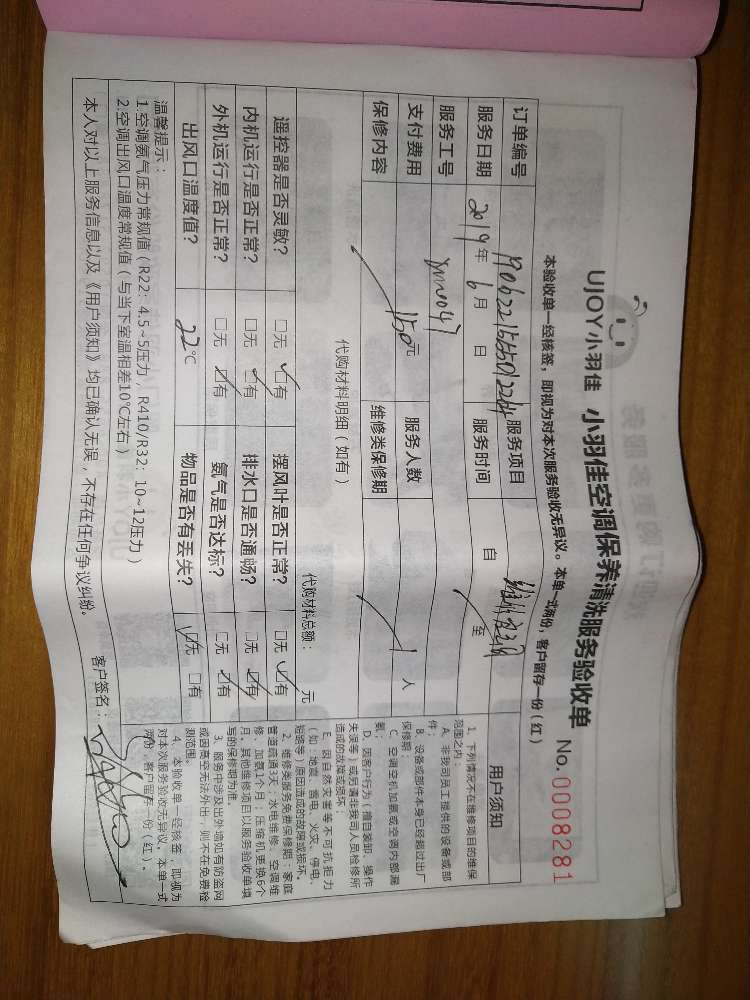 UJOY小羽佳 小羽佳空调保养清洗服务验收单 No.0008281
本验收单一经核签，即视为对本次服务验收无异议。本单一式两份，客户留存一份（红）
订单编号 服务项目
服务日期 2019年6月 日 服务时间 自 至
服务工号
支付费用 1150元 服务人数 1人
保修内容 维修类保修期
代购材料明细（如有）
代购材料总额： 元
遥控器是否灵敏？ □无 ☑有 摆风叶是否正常？ □无 ☑有
内机运行是否正常？ □无 ☑有 排水口是否通畅？ □无 ☑有
外机运行是否正常？ □无 ☑有 氨气是否达标？ □无 ☑有
出风口温度值？ 22℃ 物品是否有丢失？ ☑无 □有
温馨提示：
1.空调氨气压力常规值（R22：4.5~5压力），R410/R32：10~12压力）
2.空调出风口温度常规值（与当下室温相差10℃左右）
本人对以上服务信息以及《用户须知》均已确认无误，不存在任何争议纠纷。
客户签名：
用户须知
1、下列情况不在维修项目的维保
范围之内：
A、非我司员工提供的设备或部
件；
B、设备或部件本身已经超过出厂
保修期；
C、空调空机加氨或空调内部漏
氨；
D、因客户行为（擅自装卸、操作
失误等）或另请非我司人员检修所
造成的故障或损坏；
E、因自然灾害等不可抗拒力
（如：地震、雷电、火灾、停电、
短路等）原因造成的故障或损坏。
2、维修类服务免费保修期：家庭
管道疏通3天；水电维修、空调维
修、加氨1个月；压缩机更换6个
月。其他维修项目以服务验收单填
写的保修期为准。
3、服务中涉及出外墙如有防盗网
或因高空无法外出，则不在免费检
测范围。
4、本验收单一经核签，即视为
对本次服务验收无异议。本单一式
两份，客户留存一份（红）。